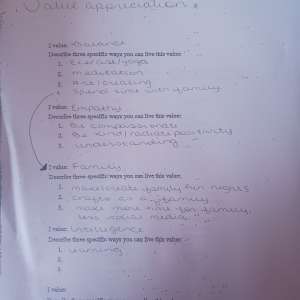 Value appreciation.
I value: Balance
Describe three specific ways you can live this value:
1. Exercise/yoga
2. meditation
3. Art/creating
4. Spend time with family
I value: Empathy
Describe three specific ways you can live this value:
1. Be compassionate
2. Be kind/radiate positivity
3. understanding
I value: Family
Describe three specific ways you can live this value:
1. make/create family fun nights
2. crafts as a family
3. make more time for family,
less social media.
I value: Intelligence
Describe three specific ways you can live this value:
1. learning
2.
3.
I value: